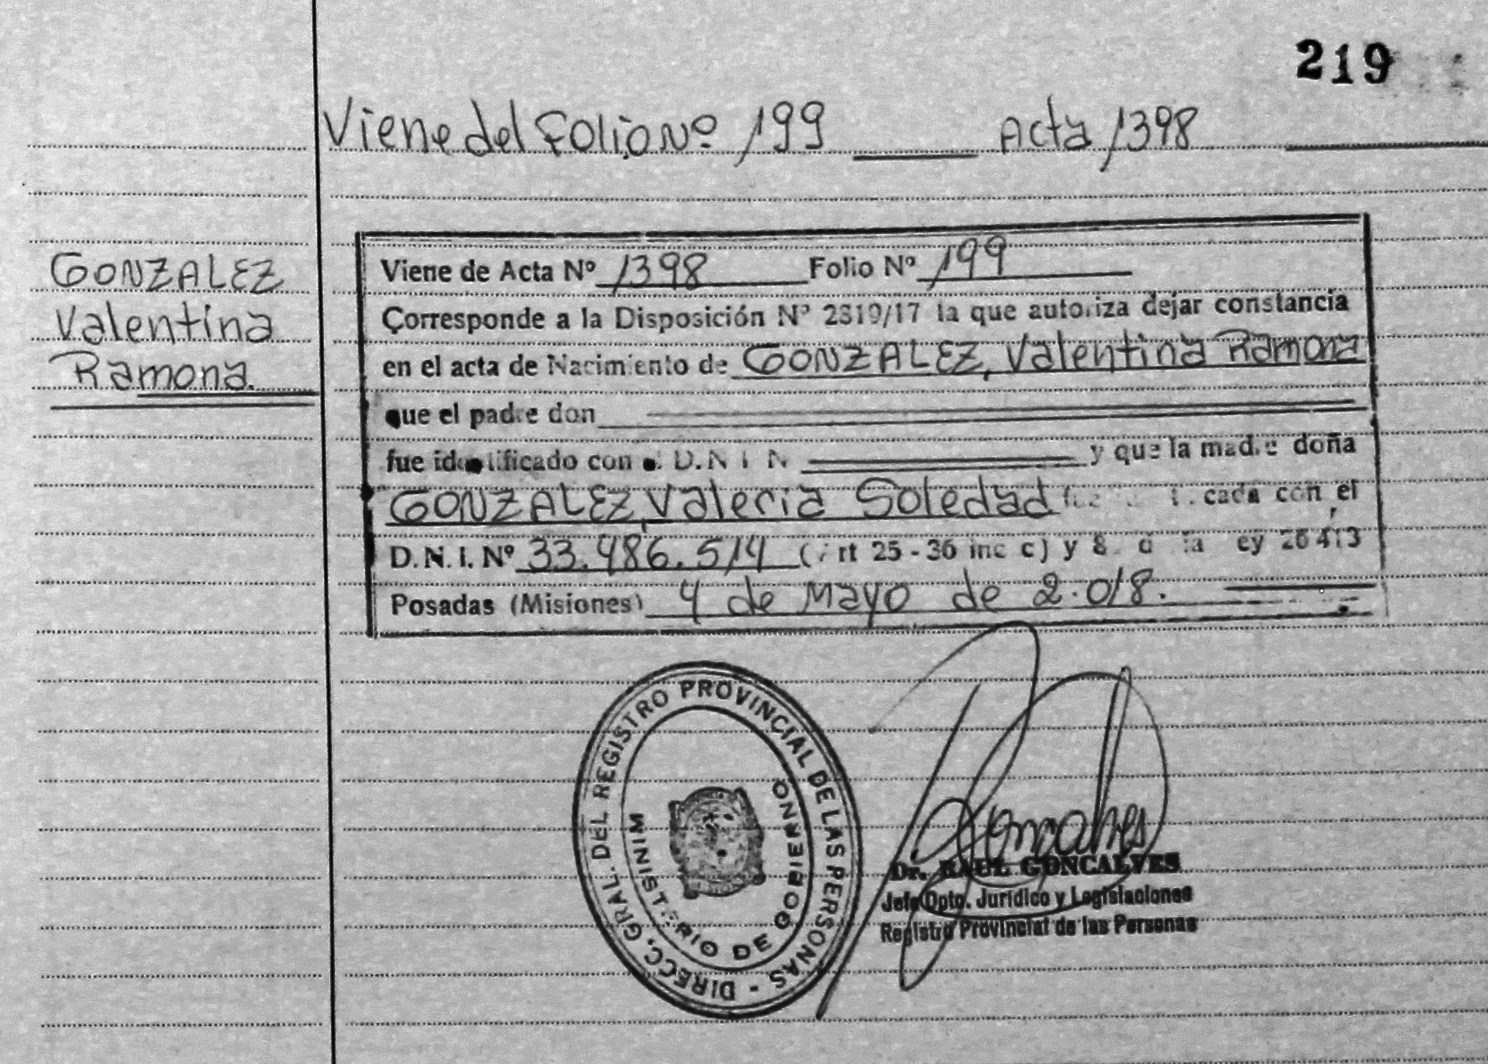 219
Viene del Folio Nº 199 Acta 1398
GONZALEZ
Valentina
Ramona.
Viene de Acta Nº 1398 Folio Nº 199
Corresponde a la Disposición Nº 2319/17 la que autoriza dejar constancia
en el acta de Nacimiento de GONZALEZ, Valentina Ramona
que el padre don
fue identificado con el D.N.I. Nº y que la madre doña
GONZALEZ, Valeria Soledad cada con el
D.N.I. Nº 33.486.514 (Art 25 - 36 inc c) y 8 d la ey 26413
Posadas (Misiones) 4 de Mayo de 2.018.
DIRECC. GRAL. DEL REGISTRO PROVINCIAL DE LAS PERSONAS -
MINISTERIO DE GOBIERNO
Goncalves
Dr. RAUL GONCALVES
Jefe Dpto. Jurídico y Legislaciones
Registro Provincial de las Personas